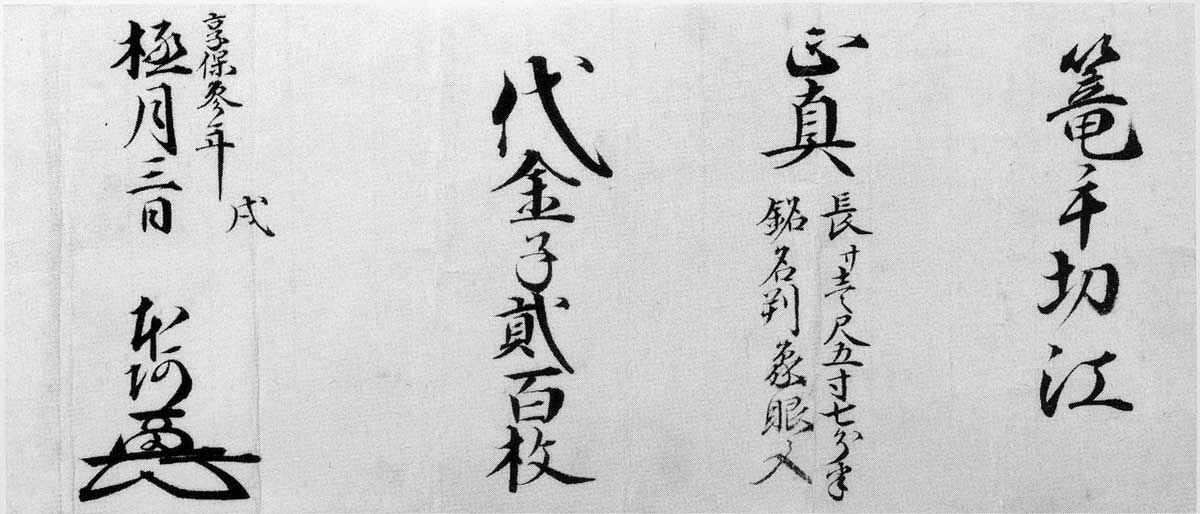 篭手切江
正真
長サ壱尺五寸七分半
銘名判象眼入
代金子貳百枚
享保参年
戌
極月三日
本阿